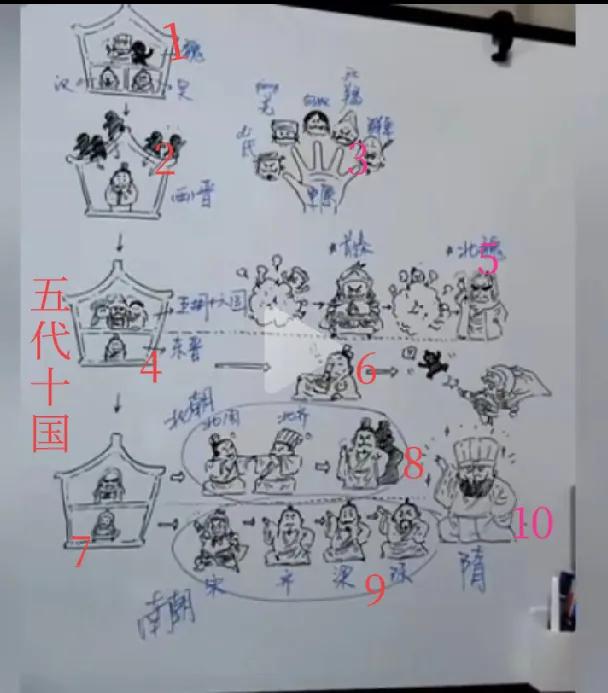 1
魏
汉
吴
2
西晋
氐
羌
匈奴
羯
鲜卑
3
中原
五代十国
前秦
北魏
5
五胡十六国
4
东晋
6
北朝
北周
北齐
8
7
10
宋
齐
梁
陈
9
隋
南朝